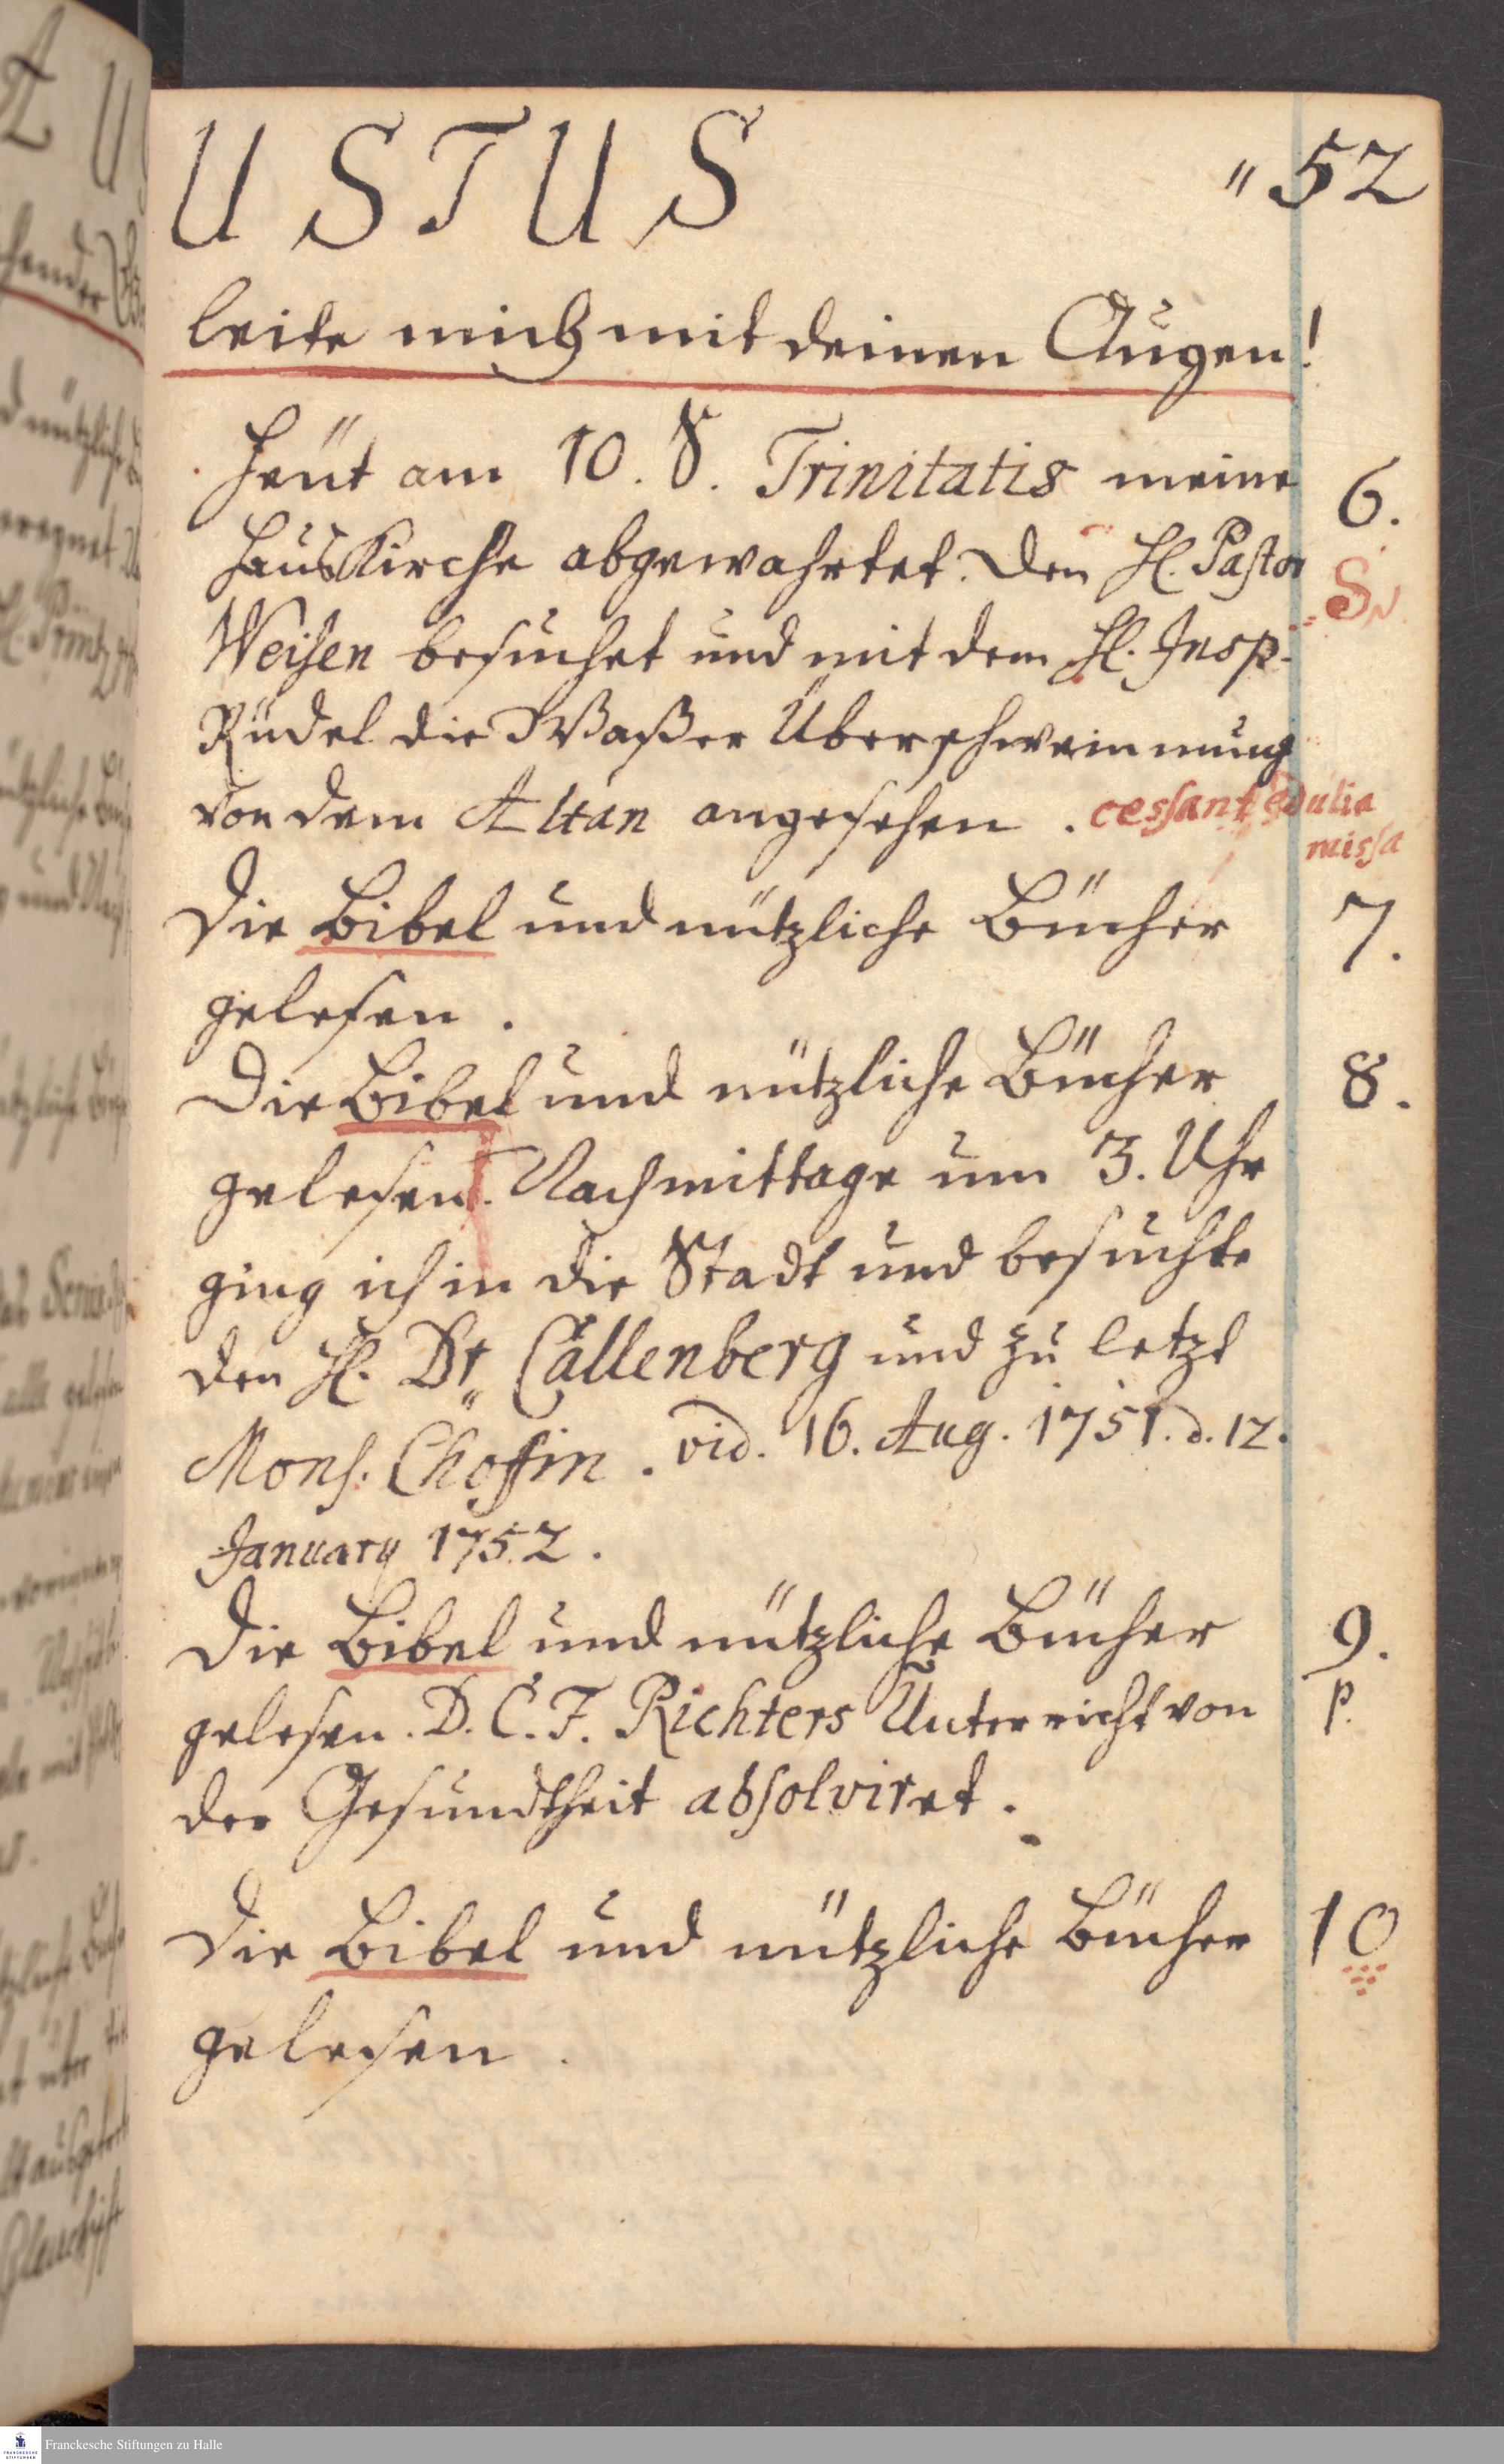 USTUS " 52
leite mich mit deinen Augen!
Heut am 10. S. Trinitatis meine 6.
HausKirche abgewahrtet. Den H. Pastor S
Weisen besuchet und mit dem H. Insp.
Rüdel die Waßer Überschwemmung
von dem Altan angesehen. cessant edulia
missa
Die Bibel und nützliche Bücher 7.
gelesen.
Die Bibel und nützliche Bücher 8.
gelesen. Nachmittage um 3. Uhr
ging ich in die Stadt und besuchte
den H. Dr. Callenberg und zu letzt
Mons. Choffin. vid. 16. Aug. 1751. d. 12.
January 1752.
Die Bibel und nützliche Bücher 9.
gelesen. D. C. F. Richters Unterricht von p.
der Gesundtheit absolviret.
Die Bibel und nützliche Bücher 10
gelesen.
Franckesche Stiftungen zu Halle